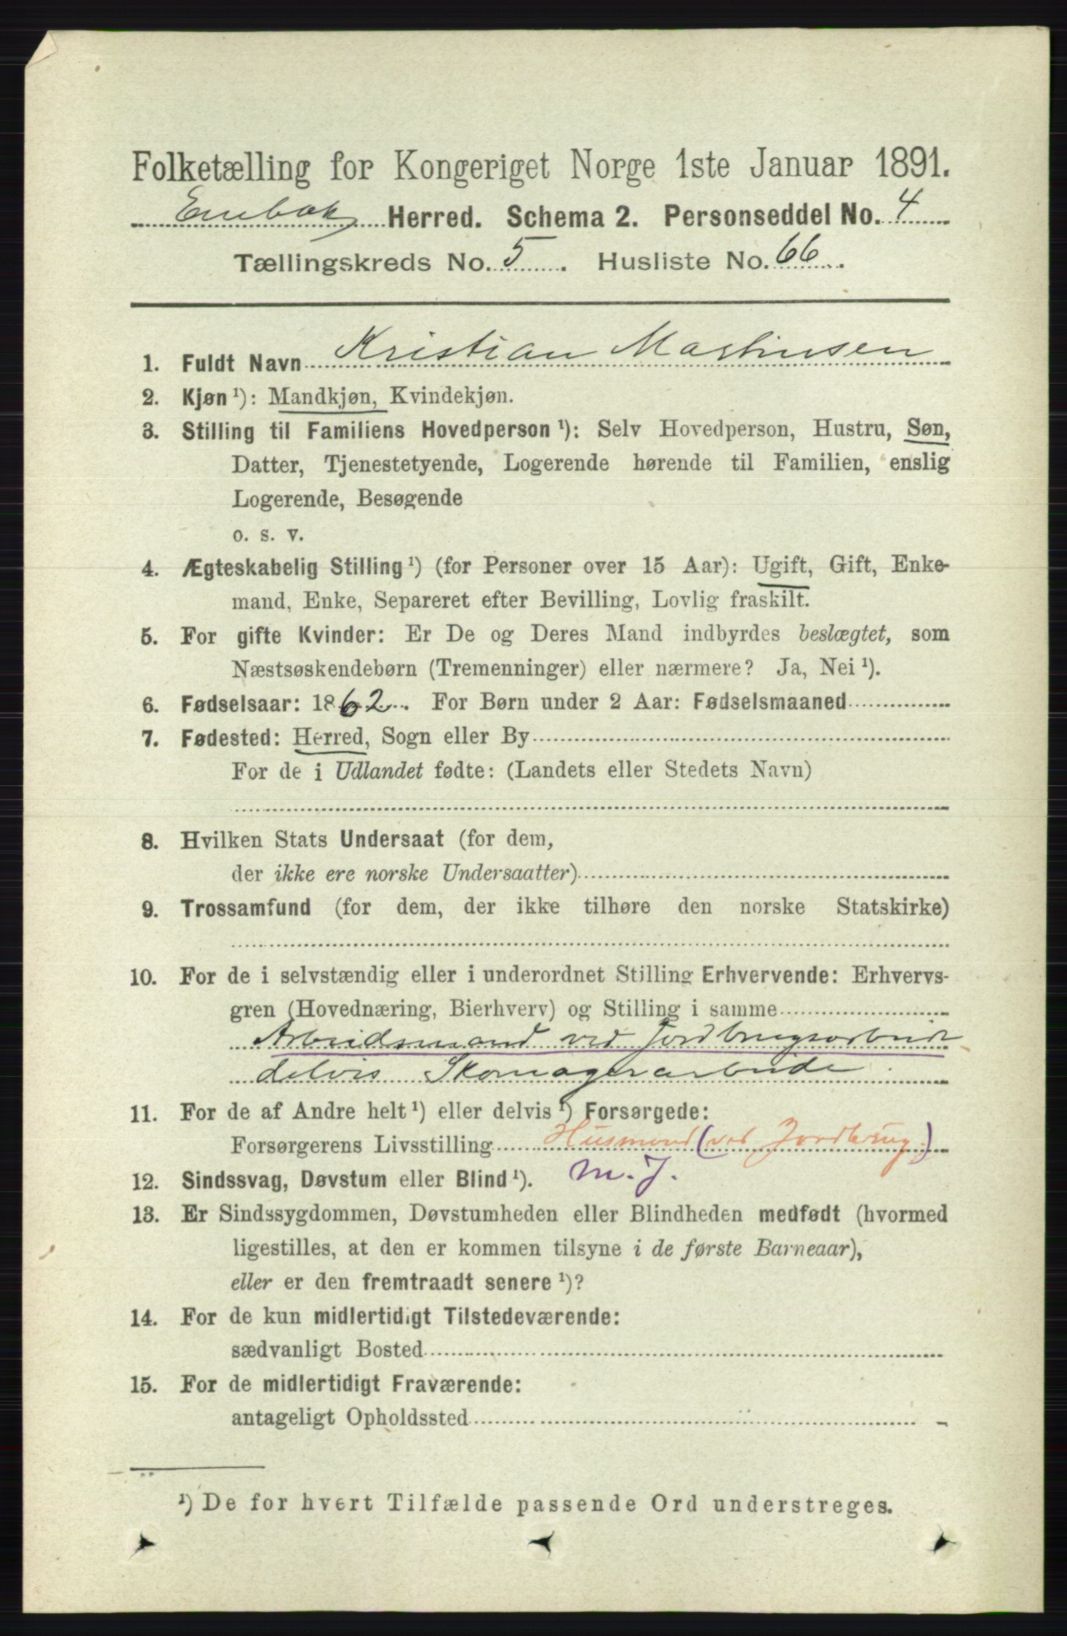 Folketælling for Kongeriget Norge 1ste Januar 1891.
Enebak Herred. Schema 2. Personseddel No. 4
Tællingskreds No. 5. Husliste No. 66.
1. Fuldt Navn Kristian Martinsen
2. Kjøn ¹): Mandkjøn, Kvindekjøn.
3. Stilling til Familiens Hovedperson ¹): Selv Hovedperson, Hustru, Søn,
Datter, Tjenestetyende, Logerende hørende til Familien, enslig
Logerende, Besøgende
o. s. v.
4. Ægteskabelig Stilling ¹) (for Personer over 15 Aar): Ugift, Gift, Enke-
mand, Enke, Separeret efter Bevilling, Lovlig fraskilt.
5. For gifte Kvinder: Er De og Deres Mand indbyrdes beslægtet, som
Næstsøskendebørn (Tremenninger) eller nærmere? Ja, Nei ¹).
6. Fødselsaar: 1862. For Børn under 2 Aar: Fødselsmaaned
7. Fødested: Herred, Sogn eller By
For de i Udlandet fødte: (Landets eller Stedets Navn)
8. Hvilken Stats Undersaat (for dem,
der ikke ere norske Undersaatter)
9. Trossamfund (for dem, der ikke tilhøre den norske Statskirke)
10. For de i selvstændig eller i underordnet Stilling Erhvervende: Erhvervs-
gren (Hovednæring, Bierhverv) og Stilling i samme
Arbeidsmand ved Jordbrugsarbeide
delvis Skomagerarbeide
11. For de af Andre helt ¹) eller delvis ¹) Forsørgede:
Forsørgerens Livsstilling Husmand (ved Jordbrug)
12. Sindssvag, Døvstum eller Blind ¹). m. J.
13. Er Sindssygdommen, Døvstumheden eller Blindheden medfødt (hvormed
ligestilles, at den er kommen tilsyne i de første Barneaar),
eller er den fremtraadt senere ¹)?
14. For de kun midlertidigt Tilstedeværende:
sædvanligt Bosted
15. For de midlertidigt Fraværende:
antageligt Opholdssted
¹) De for hvert Tilfælde passende Ord understreges.